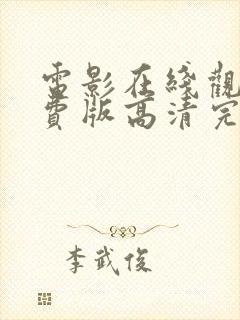 電影在綫觀
費版高清完
李武俊